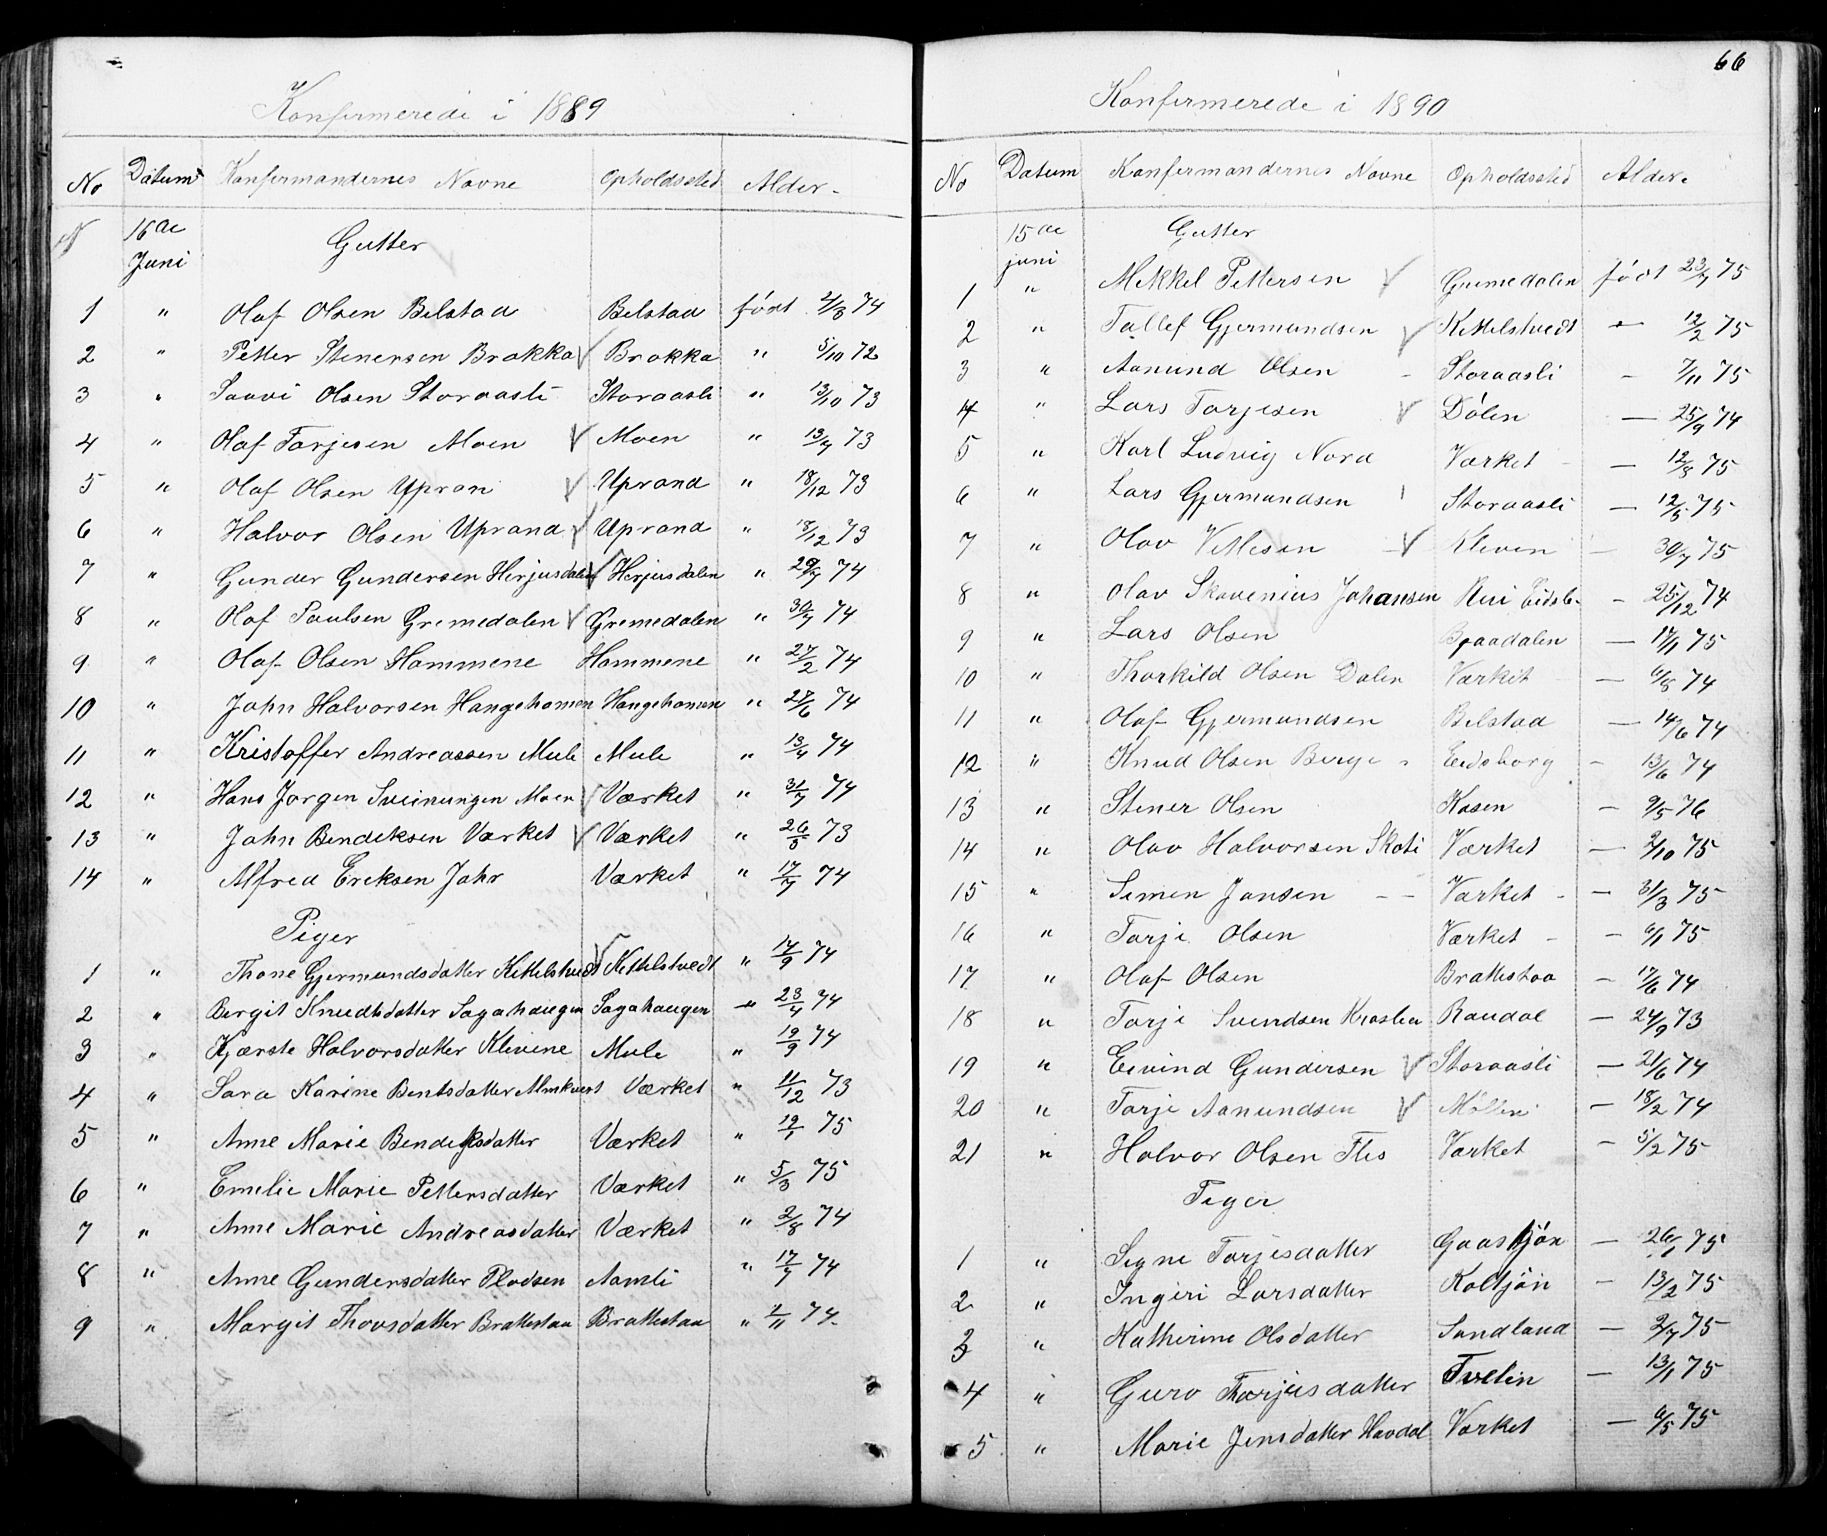 Konfirmerede i 1889
No Datum Konfirmandernes Navne Opholdssted Alder
16de Juni Gutter
1 " Olaf Olsen Belstad Belstad født 2/3 74
2 " Petter Stenersen Brokka Brokka " 5/10 72
3 " Saavi Olsen Storaasli Storaasli " 13/10 73
4 " Olaf Torjesen Moen Moen " 73
5 " Olaf Olsen Upran Uprand " 18/12 73
6 " Halvor Olsen Uprand Uprand " 18/12 73
7 " Gunder Gundersen Herjusdalen Herjusdalen " 29/7 74
8 " Olaf Paulsen Gremedalen Gremedalen " 30/7 74
9 " Olaf Olsen Hommene Hommene " 27/2 74
10 " John Halvorsen Hangehomen Hangehomen " 27/6 74
11 " Kristoffer Andreassen Mule Mule " 13/4 74
12 " Hans Jørgen Sveinungen Moen Værket " 31/7 74
13 " John Bendeksen Værket Værket " 26/3 73
14 " Alfred Ereksen Jahr Værket " 17/7 74
Piger
1 " Thone Gjermundsdatter Kittelstvedt Kittelstvedt " 17/9 74
2 " Bergit Knudtsdatter Sagahaugen Sagahaugen " 23/4 74
3 " Kjærste Halvorsdatter Klevene Mule " 19/9 74
4 " Sara Karine Bentsdatter Almkvest Værket " 11/12 73
5 " Anne Marie Bendeksdatter Værket " 19/1 75
6 " Emelie Marie Pettersdatter Værket " 5/3 75
7 " Anne Marie Andreasdatter Værket " 2/8 74
8 " Anne Gundersdatter Plodsen Aamli " 17/7 74
9 " Margit Thovsdatter Brattestaa Brattestaa " 1/11 74
66
Konfirmerede i 1890
No Datum Konfirmandernes Navne Opholdssted Alder
15de juni Gutter
1 " Mekkel Pettersen Gremedalen født 23/7 75
2 " Tallef Gjermundsen Kittelstvedt " 12/2 75
3 " Aanund Olsen Storaasli – 7/11 75
4 " Lars Torjesen Dölen — 25/9 74
5 " Karl Ludvig Nord Værket — 12/8 75
6 " Lars Gjermundsen Storaasli — 12/5 75
7 " Olav Vetlesen Kleven — 30/7 75
8 " Olav Skavenius Johansen – 25/12 74
9 " Lars Olsen Braadalen — 17/1 75
10 " Thorkild Olsen Dalen Værket — 6/8 74
11 " Olaf Gjermundsen Belstad — 14/6 74
12 " Knud Olsen Berge Eidsborg – 13/6 74
13 " Stener Olsen Kosen – 9/5 76
14 " Olav Halvorsen Skoti Værket — 2/10 75
15 " Simen Jansen Værket — 31/3 75
16 " Torje Olsen Værket – 6/1 75
17 " Olaf Olsen Brattestaa – 17/6 74
18 " Torje Svendsen Raudal — 24/9 73
19 " Eivind Gundersen Storaasli — 21/6 74
20 " Torje Aanundsen Møllen – 18/2 74
21 " Halvor Olsen Flis Værket – 5/2 75
Piger
1 " Signe Torjesdatter Gaastjön — 26/1 75
2 " Ingeri Larsdatter Koltjön – 13/2 75
3 " Katherine Olsdatter Sandland – 2/7 75
4 " Guro Thorjusdatter Tvelin – 13/1 75
5 " Marie Jensdatter Havdal Værket — 6/5 75